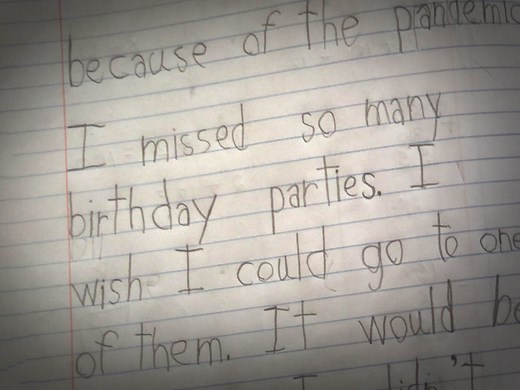 because of the pandemic
I missed so many
birthday parties. I
wish I could go to one
of them. It would be
I didn't